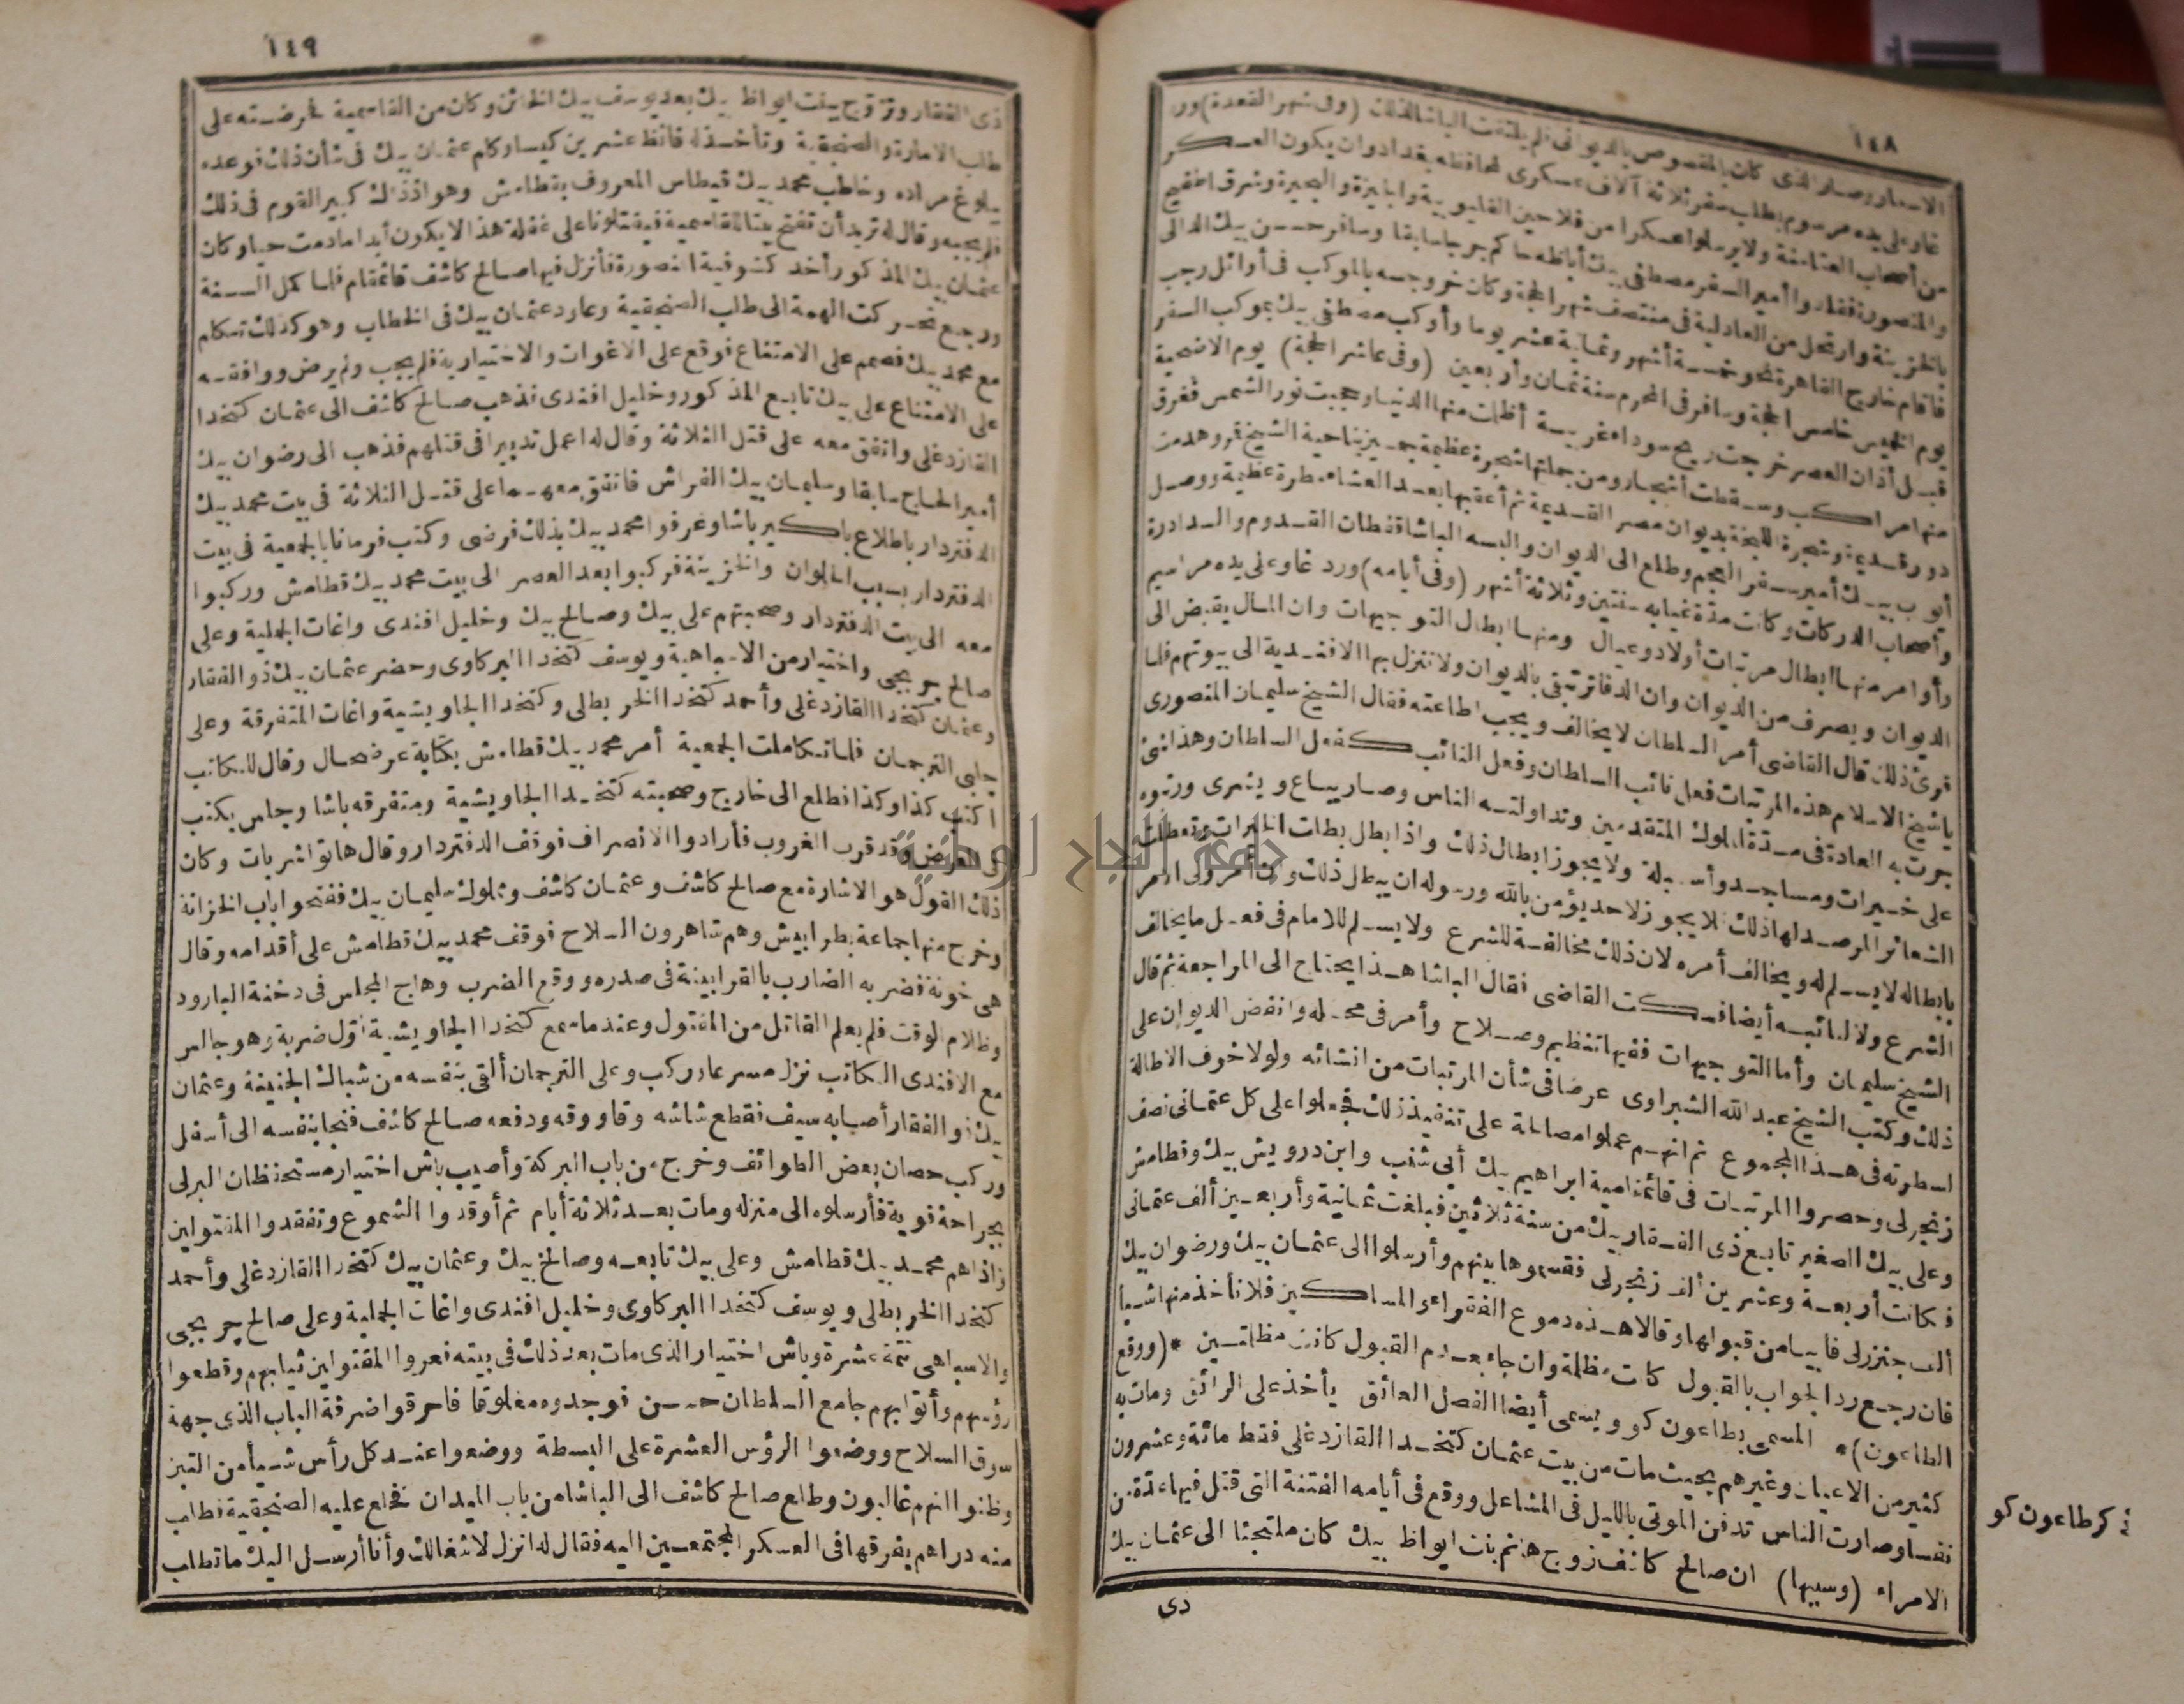 ١٤٨
الاسعار وصار الذى كان بالمقصوص بالديوانى فلم يلتفت الباشا لذلك (وفى شهر القعدة) ورد
غاو على يده مرسوم بطلب سفر ثلاثة آلاف عسكرى لمحافظة بغداد وان يكون العسكر
من أصحاب العتامنة ولا يرسلوا عسكرا من فلاحين القليوبية والجيزة والبحيرة وشرق اطفيح
والمنصورة فقلدوا أمير السفر مصطفى بيك أباظه حاكم جرجا سابقا وسافر حسن بيك الدالى
بالخزينة وارتحل من العادلية فى منتصف شهر الحجة وكان خروجه بالموكب فى أوائل رجب
فاقام خارج القاهرة نحو خمسة أشهر وثمانية عشر يوما وأوكب مصطفى بيك بموكب السفر
يوم الخميس خامس الحجة وسافر فى المحرم سنة ثمان وأربعين (وفى عاشر الحجة) يوم الاضحية
قبل أذان العصر خرجت ريح سوداء غريبة أظلمت منها الدنيا وحجبت نور الشمس فغرق
منها مراكب وسقطت أشجار ومن جملتها شجرة عظيمة جميز بناحية الشيخ قمر وهدمت
دورقديمة وشجرة اللبخة بديوان مصر القديمة ثم أعقبها بعد العشاء مطرة عظيمة ووصل
أيوب بيك أمير سفر العجم وطلع الى الديوان والبسه الباشا قفطان القدوم والسدادرة
وأصحاب الدركات وكانت مدة غيابه سنتين وثلاثة أشهر (وفى أيامه) ورد غاو على يده مراسيم
وأوامر منها ابطال مرتبات أولاد وعيال ومنها ابطال التوجيهات وان المال يقبض الى
الديوان ويصرف من الديوان وان الدفاتر تبقى بالديوان ولا تنزل بها الافندية الى بيوتهم فلما
قرئ ذلك قال القاضى أمر السلطان لا يخالف ويجب اطاعته فقال الشيخ سليمان المنصورى
ياشيخ الاسلام هذه المرتبات فعل نائب السلطان وفعل النائب كفعل السلطان وهذا شئ
جرت به العادة فى مدة الملوك المتقدمين وتداولته الناس وصار يباع ويشرى ورتبوه
على خيرات ومساجد وأسبلة ولا يجوز ابطال ذلك واذا بطل بطلت الخيرات وتعطلت
الشعائر المرصد لها ذلك فلا يجوز لاحد يؤمن بالله ورسوله ان يبطل ذلك وان أمر ولى الامر
بابطاله لا يسلم له ويخالف أمره لان ذلك مخالفة للشرع ولا يسلم للامام فى فعل ما يخالف
الشرع ولا لنائبه أيضا فسكت القاضى فقال الباشا هذا يحتاج الى المراجعة ثم قال
الشيخ سليمان وأما التوجيهات ففيها تنظيم وصلاح وأمر فى محله وانفض الديوان على
ذلك وكتب الشيخ عبد الله الشبراوى عرضا فى شأن المرتبات من انشائه ولولا خوف الاطالة
لسطرته فى هذا المجموع ثم انهم عملوا مصالحة على تنفيذ ذلك فجعلوا على كل عثمانى نصف
زنجرلى وحصروا المرتبات فى قائمقامية ابراهيم بيك أبى شنب وابن درويش بيك وقطامش
وعلى بيك الصغير تابع ذى الفقار بيك من سنة ثلاثين فبلغت ثمانية وأربعين ألف عثمانى
فكانت أربعة وعشرين ألف زنجرلى فقسموها بينهم وأرسلوا الى عثمان بيك ورضوان بيك
ألف جنزرلى فابيا من قبولها وقالا هذه دموع الفقراء والمساكين فلا نأخذ منها شيأ
فان رجع رد الجواب بالقبول كانت مظلمة وان جاء بعدم القبول كانت مظلمتين *(ووقع
الطاعون)* المسمى بطاعون كو ويسمى أيضا الفصل العائق يأخذ على الرائق ومات به
كثير من الاعيان وغيرهم بحيث مات من بيت عثمان كتخدا القازدغلى فقط مائة وعشرون
نفسا وصارت الناس تدفن الموتى بالليل فى المشاعل ووقع فى أيامه الفتنة التى قتل فيها عدة من
الامراء (وسببها) ان صالح كاشف زوج هانم بنت ايواظ بيك كان ملتجئا الى عثمان بيك
ذى
ذكر طاعون كو
١٤٩
ذى الفقار وتزوج ببنت ايواظ بيك بعد يوسف بيك الخائن وكان من القاسمية فحرضته على
طلب الامارة والصنجقية وتأخذ له فائظ عشرين كيسا وكلم عثمان بيك فى شأن ذلك فوعده
ببلوغ مراده وخاطب محمد بيك قيطاس المعروف بقطامش وهو اذ ذاك كبير القوم فى ذلك
فلم يجبه وقال له تريد أن تفتح بيتا للقاسمية فيقتلونا على غفلة هذا لا يكون أبدا ما دمت حيا وكان
عثمان بيك المذكور أخذ كشوفية المنصورة فأنزل فيها صالح كاشف قائمقام فلما كمل السنة
ورجع تحركت الهمة الى طلب الصنجقية وعاود عثمان بيك فى الخطاب وهو كذلك تكلم
مع محمد بيك فصمم على الامتناع فوقع على الاغوات والاختيارية فلم يجب ولم يرض ووافقه
على الامتناع على بيك تابع المذكور وخليل افندى فذهب صالح كاشف الى عثمان كتخدا
القازدغلى واتفق معه على قتل الثلاثة وقال له اعمل تدبيرا فى قتلهم فذهب الى رضوان بيك
أمير الحاج سابقا وسليمان بيك الفراش فاتفق معهما على قتل الثلاثة فى بيت محمد بيك
الدفتردار باطلاع باكير باشا وعرفوا محمد بيك بذلك فرضى وكتب فرمانا بالجمعية فى بيت
الدفتردار بسبب الحلوان والخزينة فركبوا بعد العصر الى بيت محمد بيك قطامش وركبوا
معه الى بيت الدفتردار وصحبتهم على بيك وصالح بيك وخليل افندى واغات الجملية وعلى
صالح جربجى واختيار من الاسباهية ويوسف كتخدا البركاوى وحضر عثمان بيك ذو الفقار
وعثمان كتخدا القازدغلى وأحمد كتخدا الخربطلى وكتخدا الجاويشية واغات المتفرقة وعلى
جلبى الترجمان فلما تكاملت الجمعية أمر محمد بيك قطامش بكتابة عرضحال وقال للكاتب
اكتب كذا وكذا فطلع الى خارج وصحبته كتخدا الجاويشية ومتفرقه باشا وجلس يكتب
فى العرض وقد قرب الغروب فأرادوا الانصراف فوقف الدفتردار وقال هاتوا شربات وكان
ذلك القول هو الاشارة مع صالح كاشف وعثمان كاشف ومملوك سليمان بيك ففتحوا باب الخزانة
وخرج منها جماعة بطرابيش وهم شاهرون السلاح فوقف محمد بيك قطامش على أقدامه وقال
هى خونة فضربه الضارب بالقرابينة فى صدره ووقع الضرب وهاج المجلس فى دخنة البارود
وظلام الوقت فلم يعلم القاتل من المقتول وعندما سمع كتخدا الجاويشية أول ضربة وهو جالس
مع الافندى الكاتب نزل مسرعا وركب وعلى الترجمان ألقى بنفسه من شباك الجنينة وعثمان
بيك ذو الفقار أصابه سيف فقطع شاشه وقاووقه ودفعه صالح كاشف فنجا بنفسه الى أسفل
وركب حصان بعض الطوائف وخرج من باب البركة وأصيب باش اختيار مستحفظان البرلى
بجراحة قوية فأرسلوه الى منزله ومات بعد ثلاثة أيام ثم أوقدوا الشموع وتفقدوا المقتولين
فاذا هم محمد بيك قطامش وعلى بيك تابعه وصالح بيك وعثمان بيك كتخدا القازدغلى وأحمد
كتخدا الخربطلى ويوسف كتخدا البركاوى وخليل افندى واغات الجملية وعلى صالح جربجى
والاسباهى تتمة عشرة وباش اختيار الذى مات بعد ذلك فى بيته فعروا المقتولين ثيابهم وقطعوا
رؤسهم وأتوا بهم جامع السلطان حسن فوجدوه مغلوقا فاحرقوا ضرفة الباب الذى جهة
سوق السلاح ووضعوا الرؤس العشرة على البسطة ووضعوا عند كل رأس شيأ من التبن
وظنوا انهم غالبون وطلع صالح كاشف الى الباشا من باب الميدان فخلع عليه الصنجقية فطلب
منه دراهم يفرقها فى العسكر المجتمعين اليه فقال له انزل لاشغالك وأنا أرسل اليك ما تطلب
جامعة النجاح الوطنية